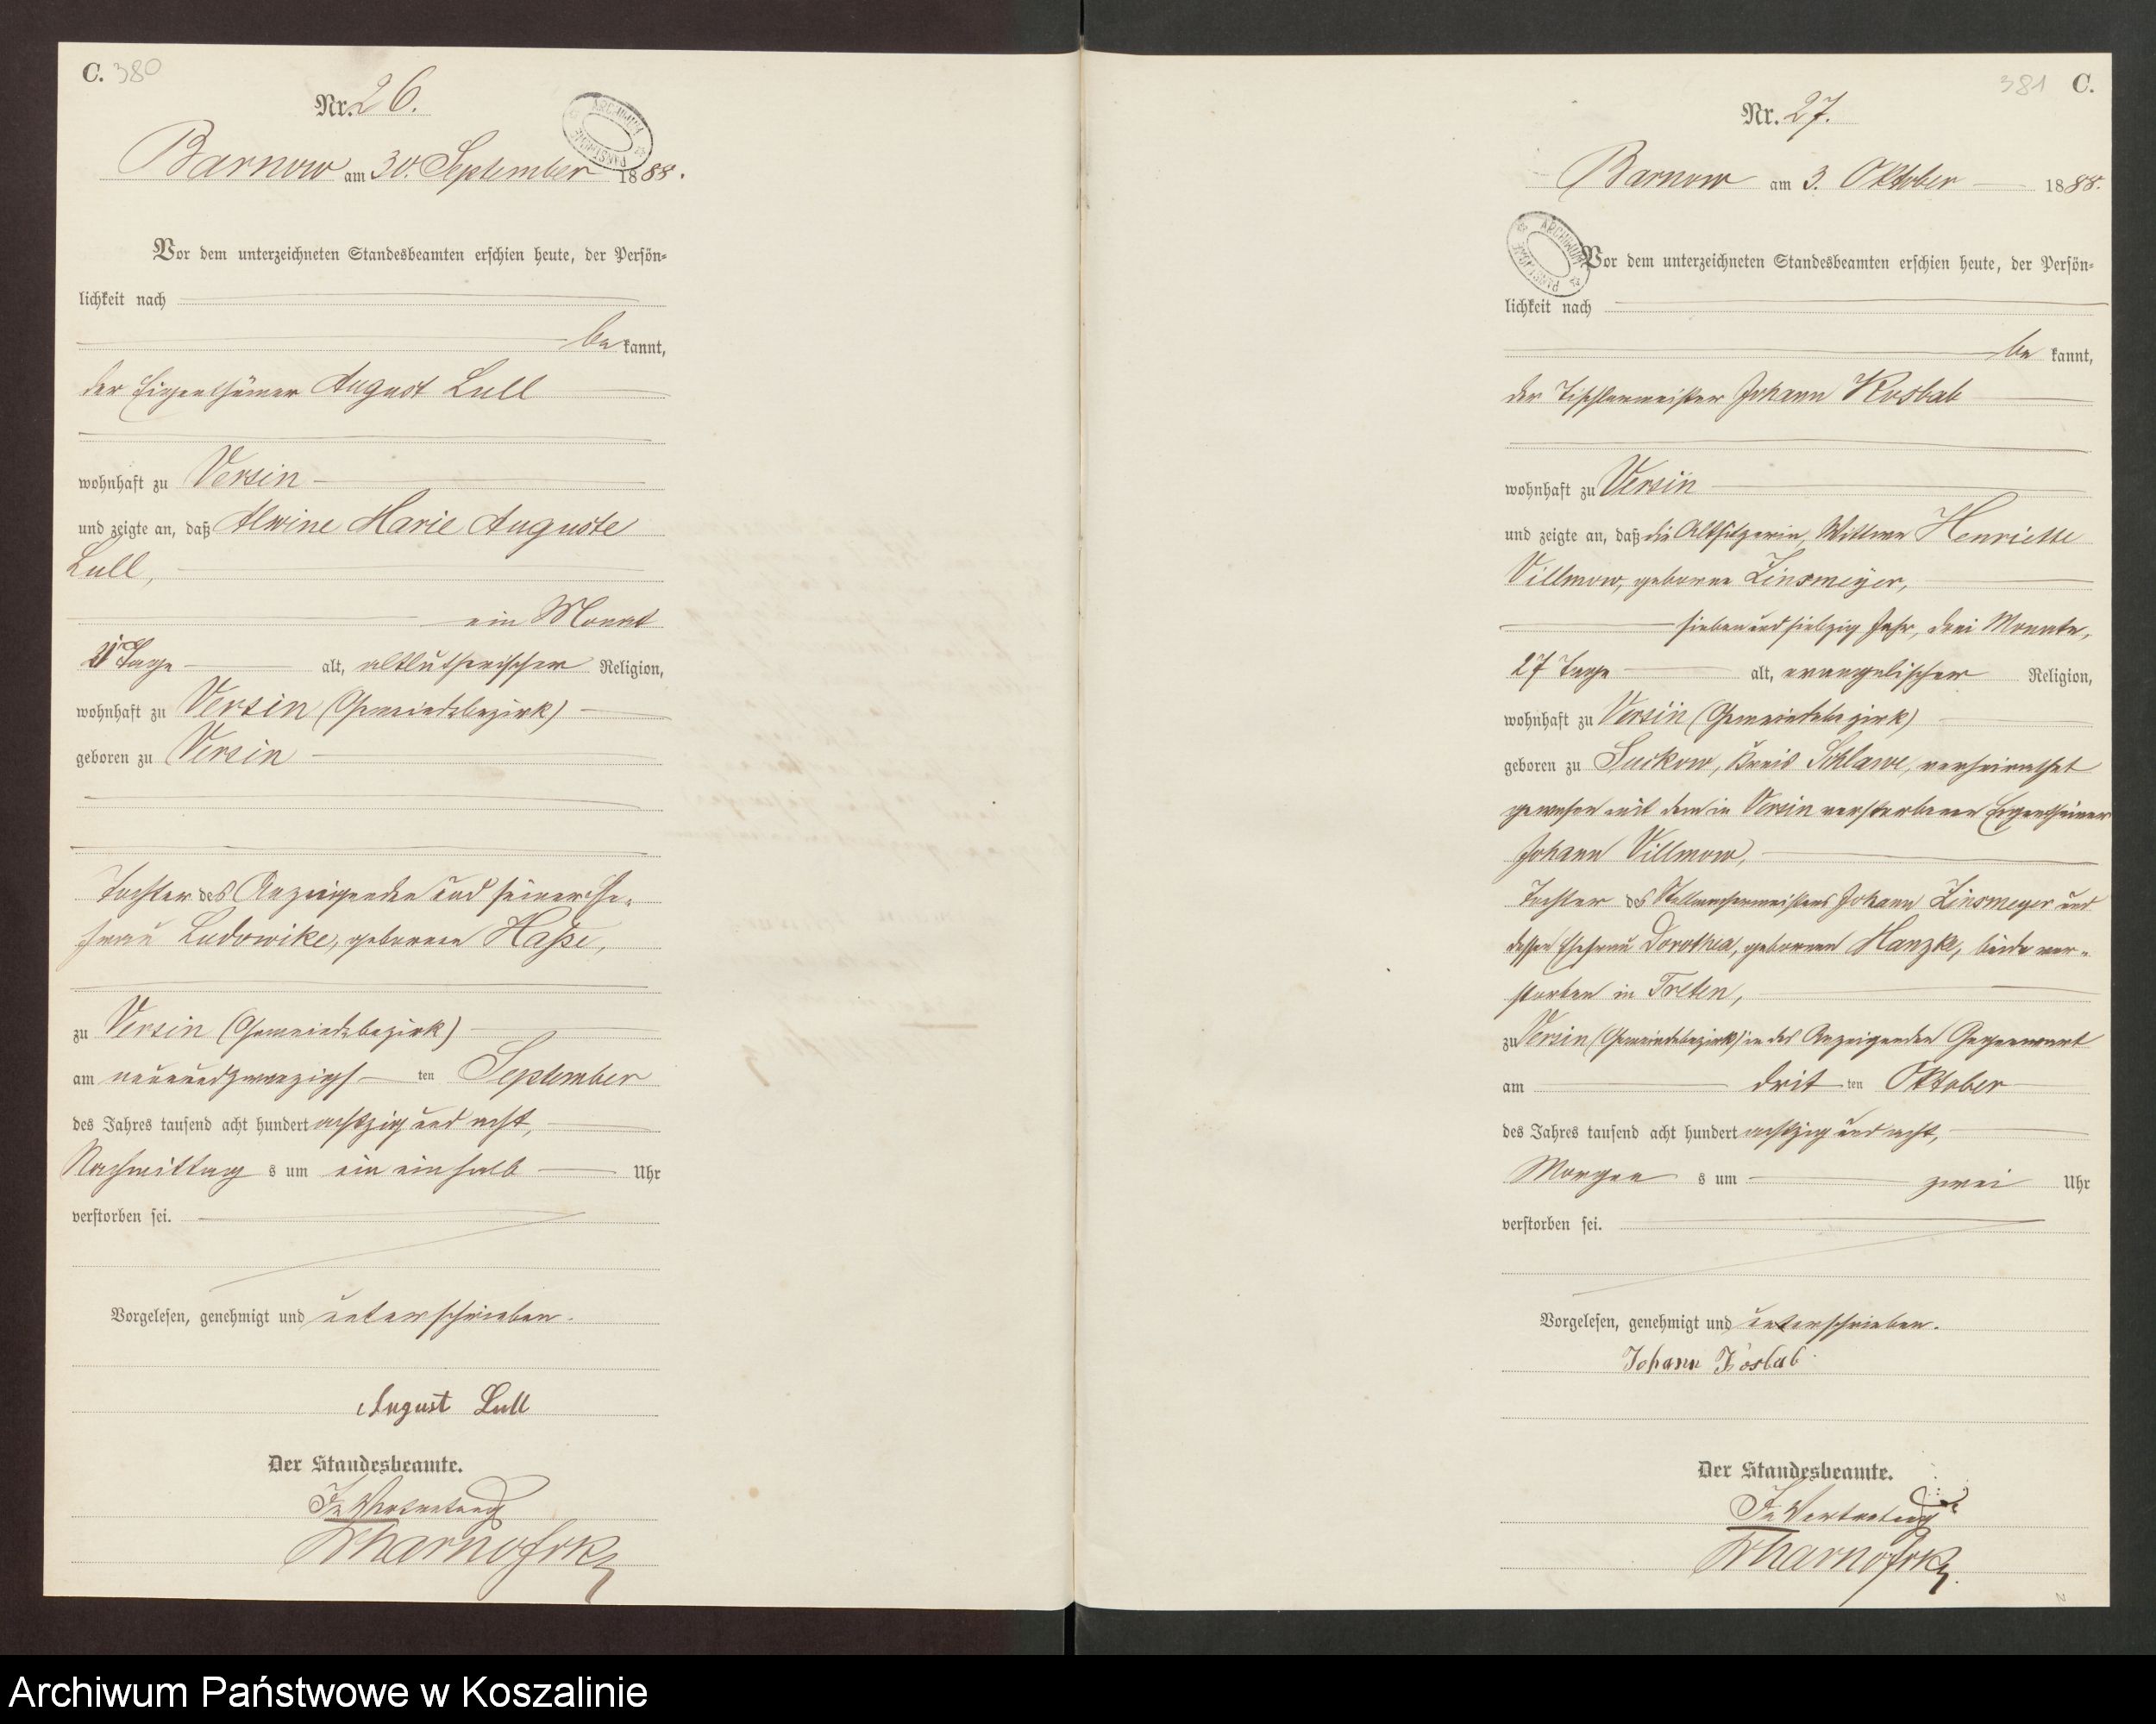 C. 380
Nr. 26.
ARCHIWUM PAŃSTWOWE
Barnow am 30. September 1888.
Vor dem unterzeichneten Standesbeamten erschien heute, der Persön-
lichkeit nach
bekannt,
der Eigenthümer August Lull
wohnhaft zu Versin
und zeigte an, daß Alwine Marie Auguste
Lull,
ein Monat
Tage alt, altlutherischer Religion,
wohnhaft zu Versin (Gemeindebezirk)
geboren zu Versin
Tochter des Anzeigenden und seiner Ehe-
frau Ludowike, geborenen Haße,
zu Versin (Gemeindebezirk)
am neunundzwanzigsten September
des Jahres tausend acht hundert achtzig und acht,
Nachmittags um ein einhalb Uhr
verstorben sei.
Vorgelesen, genehmigt und unterschrieben.
August Lull
Der Standesbeamte.
In Vertretung
381 C.
Nr. 27.
Barnow am 3. Oktober 1888.
ARCHIWUM PAŃSTWOWE
Vor dem unterzeichneten Standesbeamten erschien heute, der Persön-
lichkeit nach
bekannt,
der Tischlermeister Johann Kosbab
wohnhaft zu Versin
und zeigte an, daß die Altsitzerin, Wittwe Henriette
Villmow, geborene Linsmeyer,
sieben und siebzig Jahr, drei Monate,
27 Tage alt, evangelischer Religion,
wohnhaft zu Versin (Gemeindebezirk)
geboren zu Suckow, Kreis Schlawe, verheirathet
gewesen mit dem in Versin verstorbenen Eigenthümer
Johann Villmow,
Tochter des Stellmachermeisters Johann Linsmeyer und
dessen Ehefrau Dorothea, geborenen Manzke, beide ver-
storben in Treten,
zu Versin (Gemeindebezirk) in des Anzeigenden Gegenwart
am dritten Oktober
des Jahres tausend acht hundert achtzig und acht,
Morgens um zwei Uhr
verstorben sei.
Vorgelesen, genehmigt und unterschrieben.
Johann Kosbab
Der Standesbeamte.
In Vertretung
Archiwum Państwowe w Koszalinie